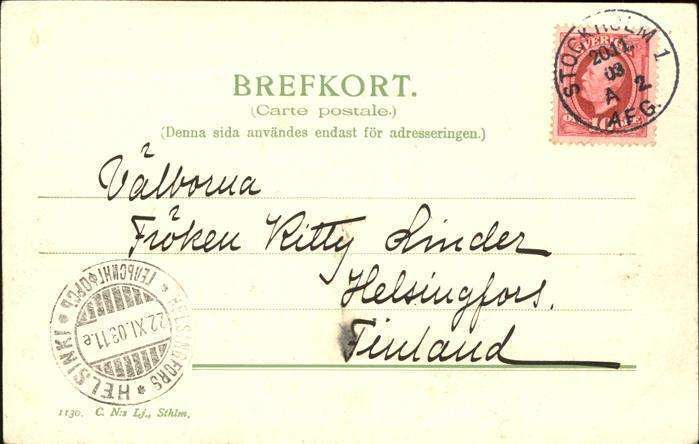 BREFKORT.
(Carte postale.)
(Denna sida användes endast för adresseringen.)
SVERIGE
10
STOCKHOLM 1
20.11.
03
A 2
AFG.
Välborna
Fröken Kitty Linder
Helsingfors.
Finland
ГЕЛЬСИНГФОРСЪ
HELSINGFORS
HELSINKI
22.XI.03.11.e
1130. C. N:s Lj., Sthlm.